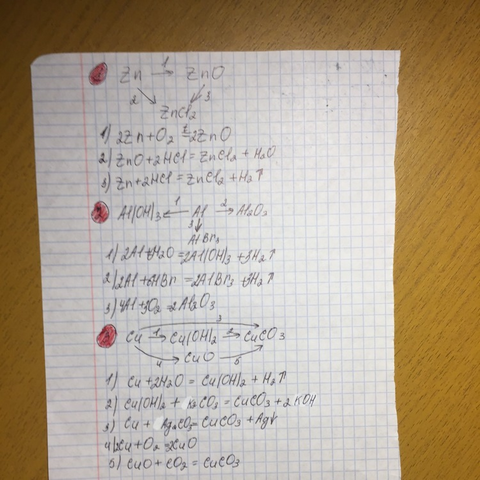 1
Zn →¹ ZnO
2 ↘ ↙ 3
ZnCl2
1) 2Zn+O2 =t 2ZnO
2) ZnO+2HCl=ZnCl2+H2O
3) Zn+2HCl=ZnCl2+H2↑
Al(OH)3 ←¹ Al →² Al2O3
3↓
AlBr3
1) 2Al+6H2O=2Al(OH)3+3H2↑
2) 2Al+6HBr=2AlBr3+3H2↑
3) 4Al+3O2=2Al2O3
3
Cu →¹ Cu(OH)2 →² CuCO3
4 CuO 5
1) Cu+2H2O=Cu(OH)2+H2↑
2) Cu(OH)2+K2CO3=CuCO3+2KOH
3) Cu+Ag2CO3=CuCO3+Ag↓
4) 2Cu+O2=2CuO
5) CuO+CO2=CuCO3